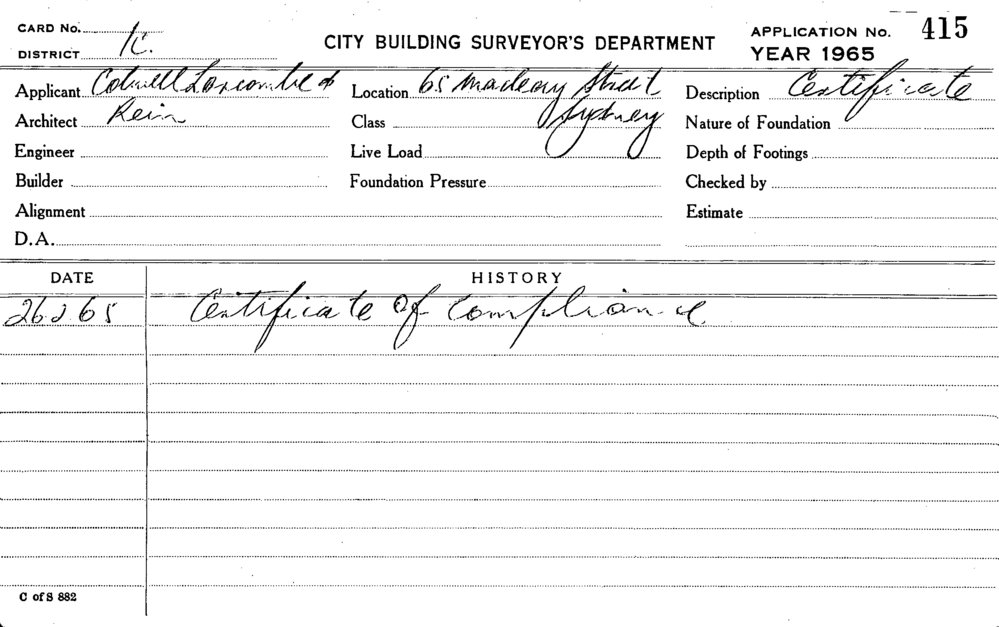 CARD No.
DISTRICT K.
CITY BUILDING SURVEYOR'S DEPARTMENT
APPLICATION No. 415
YEAR 1965
Applicant &
Location 65 Macleay Street
Description Certificate
Architect Rein
Class Sydney
Nature of Foundation
Engineer
Live Load
Depth of Footings
Builder
Foundation Pressure
Checked by
Alignment
Estimate
D.A.
DATE HISTORY
26 2 65 Certificate of Compliance
C of S 882